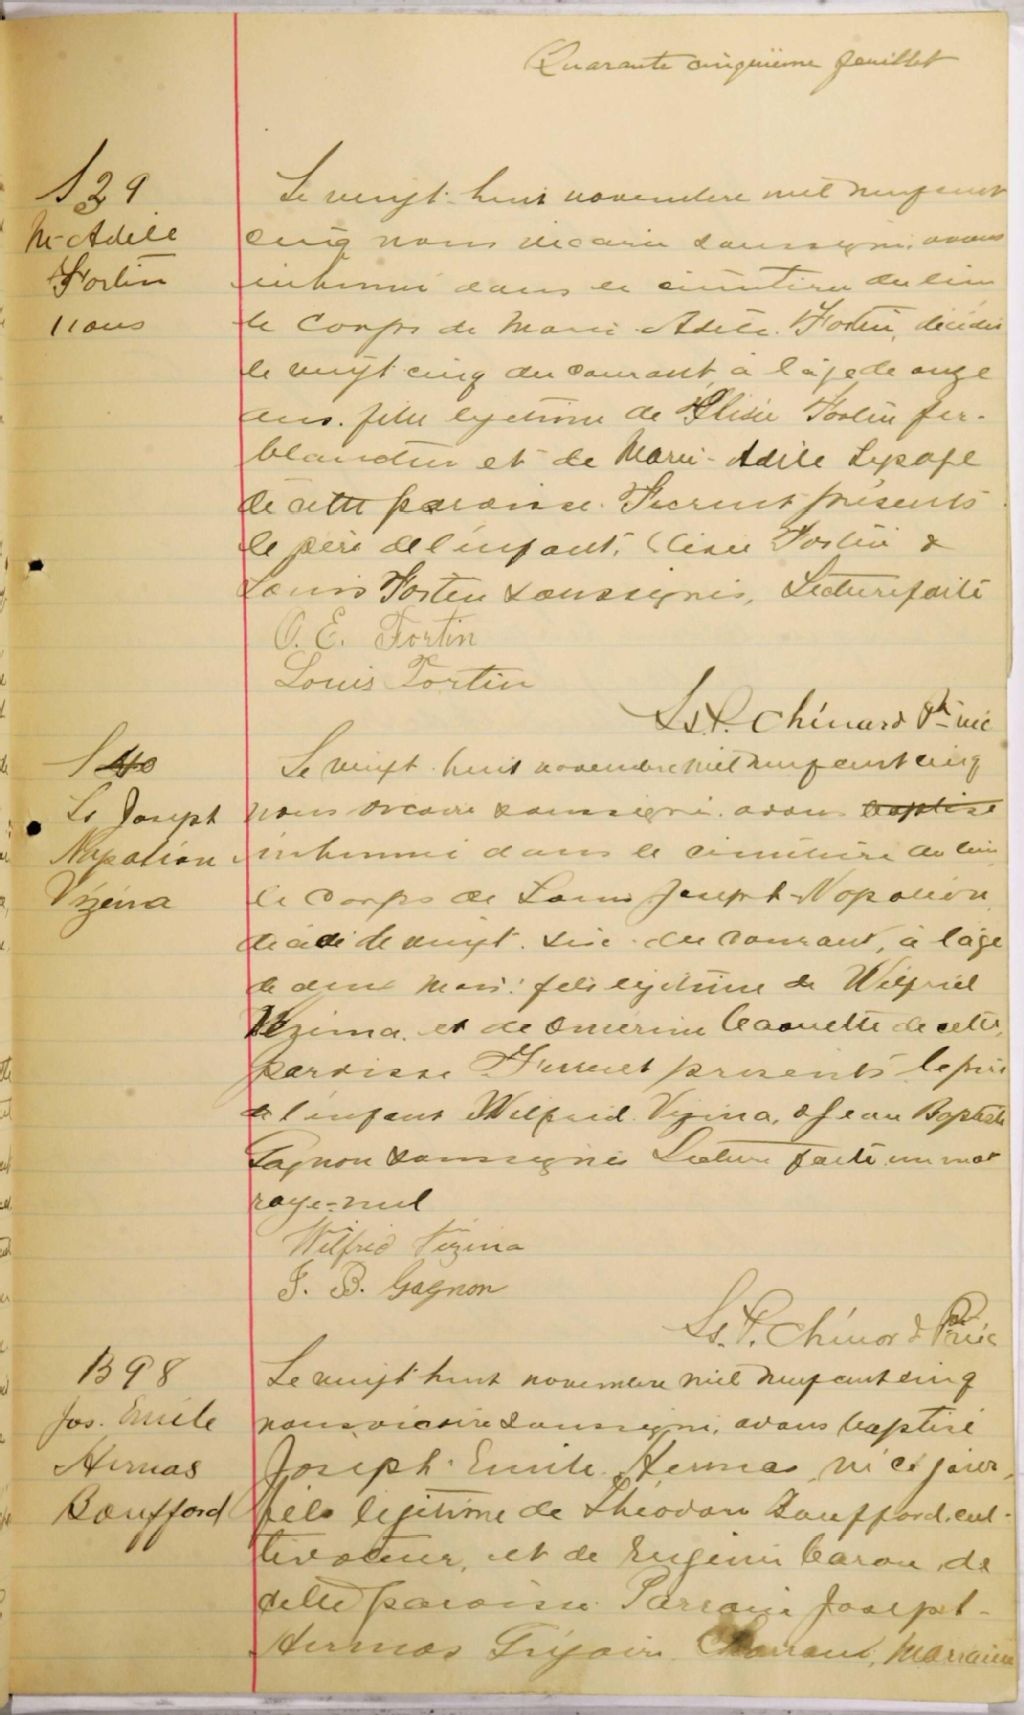 Quarante cinquième feuillet
S 39
M-Adèle
Fortin
11 ans
Le vingt-huit novembre mil neuf cent
cinq nous vicaire soussigné avons
inhumé dans le cimetière du lieu
le corps de Marie-Adèle Fortin, décédée
le vingt cinq du courant à l'âge de onze
ans. fille légitime de Elisée Fortin fer-
blantier et de Marie-Adèle Lepage
de cette paroisse. Furent présents
le père de l'enfant, Elisée Fortin &
Louis Fortin soussignés. Lecture faite
O. E. Fortin
Louis Fortin
Ls P. Chénard Ptre vic
S 40
Ls Joseph
Napoléon
Vézina
Le vingt-huit novembre mil neuf cent cinq
nous vicaire soussigné avons baptisé
inhumé dans le cimetière du lieu
le corps de Louis Joseph-Napoléon
décédé le vingt-six du courant, à l'âge
de deux mois: fils légitime de Wilfrid
Vézina et de Omérine Caouette de cette
paroisse Furent présents le père
de l'enfant Wilfrid Vézina, & Jean Baptiste
Gagnon soussignés Lecture faite un mot
rayé-nul
Wilfrid Vézina
J. B. Gagnon
Ls. P. Chénard Ptre vic
B 98
Jos. Emile
Hermas
Banfford
Le vingt huit novembre mil neuf cent cinq
nous vicaire soussigné, avons baptisé
Joseph-Emile Hermas, né ce jour,
fils légitime de Théodore Banfford, cul-
tivateur, et de Eugénie Caron, de
cette paroisse Parrain Joseph-
Hermas Marraine